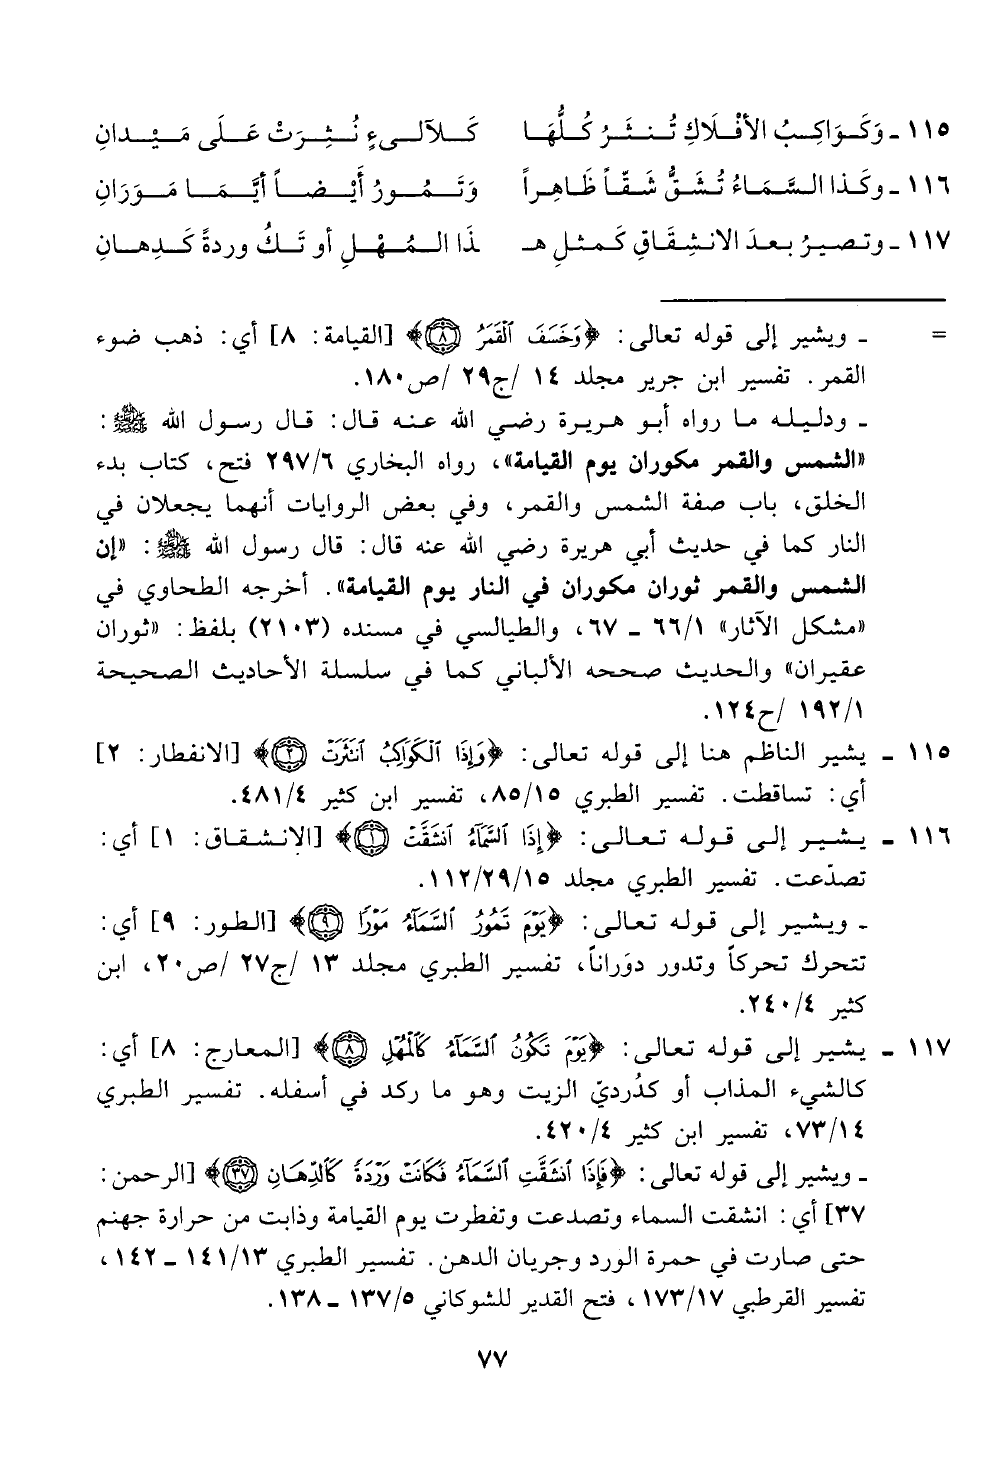 ١١٥ ـ وَكَوَاكِبُ الأفْلَاكِ تُنثَرُ كُلُّهَا كَلآلىءٍ نُثِرَتْ عَلَى مَيْدانِ
١١٦ ـ وكَذا السَّمَاءُ تُشَقُّ شَقّاً ظَاهِراً وَتَمُورُ أيْضاً أيَّمَا مَوَرَانِ
١١٧ ـ وتصيرُ بعدَ الانشِقَاقِ كَمثلِ هـ ـذَا المُهْلِ أو تَكُ وردةً كَدِهانِ
= ـ ويشير إلى قوله تعالى: ﴿وَخَسَفَ ٱلْقَمَرُ ٨﴾ [القيامة: ٨] أي: ذهب ضوء
القمر. تفسير ابن جرير مجلد ١٤ /ج٢٩ /ص١٨٠.
ـ ودليله ما رواه أبو هريرة رضي الله عنه قال: قال رسول الله ﷺ:
«الشمس والقمر مكوران يوم القيامة»، رواه البخاري ٢٩٧/٦ فتح، كتاب بدء
الخلق، باب صفة الشمس والقمر، وفي بعض الروايات أنهما يجعلان في
النار كما في حديث أبي هريرة رضي الله عنه قال: قال رسول الله ﷺ: «إن
الشمس والقمر ثوران مكوران في النار يوم القيامة». أخرجه الطحاوي في
«مشكل الآثار» ٦٦/١ ـ ٦٧، والطيالسي في مسنده (٢١٠٣) بلفظ: «ثوران
عقيران» والحديث صححه الألباني كما في سلسلة الأحاديث الصحيحة
١٩٢/١ /ح١٢٤.
١١٥ ـ يشير الناظم هنا إلى قوله تعالى: ﴿وَإِذَا ٱلْكَوَاكِبُ ٱنتَثَرَتْ ٢﴾ [الانفطار: ٢]
أي: تساقطت. تفسير الطبري ٨٥/١٥، تفسير ابن كثير ٤٨١/٤.
١١٦ ـ يشير إلى قوله تعالى: ﴿إِذَا ٱلسَّمَآءُ ٱنشَقَّتْ ١﴾ [الانشقاق: ١] أي:
تصدّعت. تفسير الطبري مجلد ١١٢/٢٩/١٥.
ـ ويشير إلى قوله تعالى: ﴿يَوْمَ تَمُورُ ٱلسَّمَآءُ مَوْرًا ٩﴾ [الطور: ٩] أي:
تتحرك تحركاً وتدور دوَراناً، تفسير الطبري مجلد ١٣ /ج٢٧ /ص٢٠، ابن
كثير ٢٤٠/٤.
١١٧ ـ يشير إلى قوله تعالى: ﴿يَوْمَ تَكُونُ ٱلسَّمَآءُ كَٱلْمُهْلِ ٨﴾ [المعارج: ٨] أي:
كالشيء المذاب أو كدُرديّ الزيت وهو ما ركد في أسفله. تفسير الطبري
٧٣/١٤، تفسير ابن كثير ٤٢٠/٤.
ـ ويشير إلى قوله تعالى: ﴿فَإِذَا ٱنشَقَّتِ ٱلسَّمَآءُ فَكَانَتْ وَرْدَةً كَٱلدِّهَانِ ٣٧﴾ [الرحمن:
٣٧] أي: انشقت السماء وتصدعت وتفطرت يوم القيامة وذابت من حرارة جهنم
حتى صارت في حمرة الورد وجريان الدهن. تفسير الطبري ١٤١/١٣ ـ ١٤٢،
تفسير القرطبي ١٧٣/١٧، فتح القدير للشوكاني ١٣٧/٥ ـ ١٣٨.
٧٧